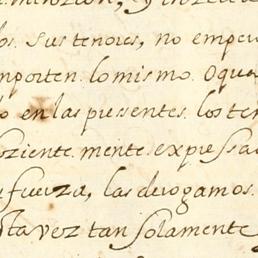 los. sus tenores, no empe
mporten. lo mismo. O qua
o en las pressentes. los te
ziente. mente. expressa
fuerza, las derogamos.
sta vez tan solamente